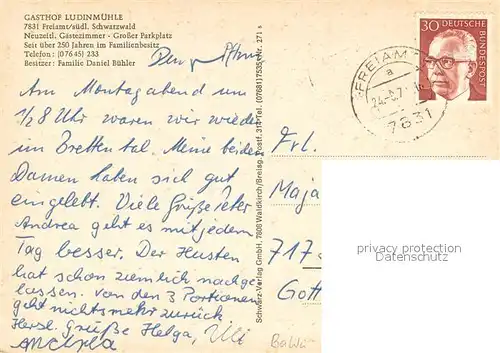 GASTHOF LUDINMÜHLE
7831 Freiamt/südl. Schwarzwald
Neuzeitl. Gästezimmer - Großer Parkplatz
Seit über 250 Jahren im Familienbesitz
Telefon: (07645) 233
Besitzer: Familie Daniel Bühler
Am Montagabend um
1/2 8 Uhr waren wir wieder
im Brettental. Meine beiden
Damen haben sich gut
eingelebt. Viele Grüße Peter
Andrea geht es mit jedem
Tag besser. Der Husten
hat schon ziemlich nachge
lassen. von den 3 Portionen
geht nichts mehr zurück
Herzl. Grüße Helga, Uli
Schwarz-Verlag GmbH, 7808 Waldkirch/Breisg., Postf. 311 Tel. (07681)7535 Nr. 271 s
FREIAMT
a
7831
30 DEUTSCHE
BUNDESPOST
Frl.
Maja
717
Gott
privacy protection
Datenschutz